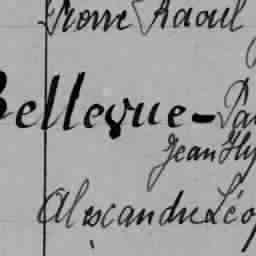 Pierre Raoul
Bellevue - Pau
Jean Hy
Alexandre Léo